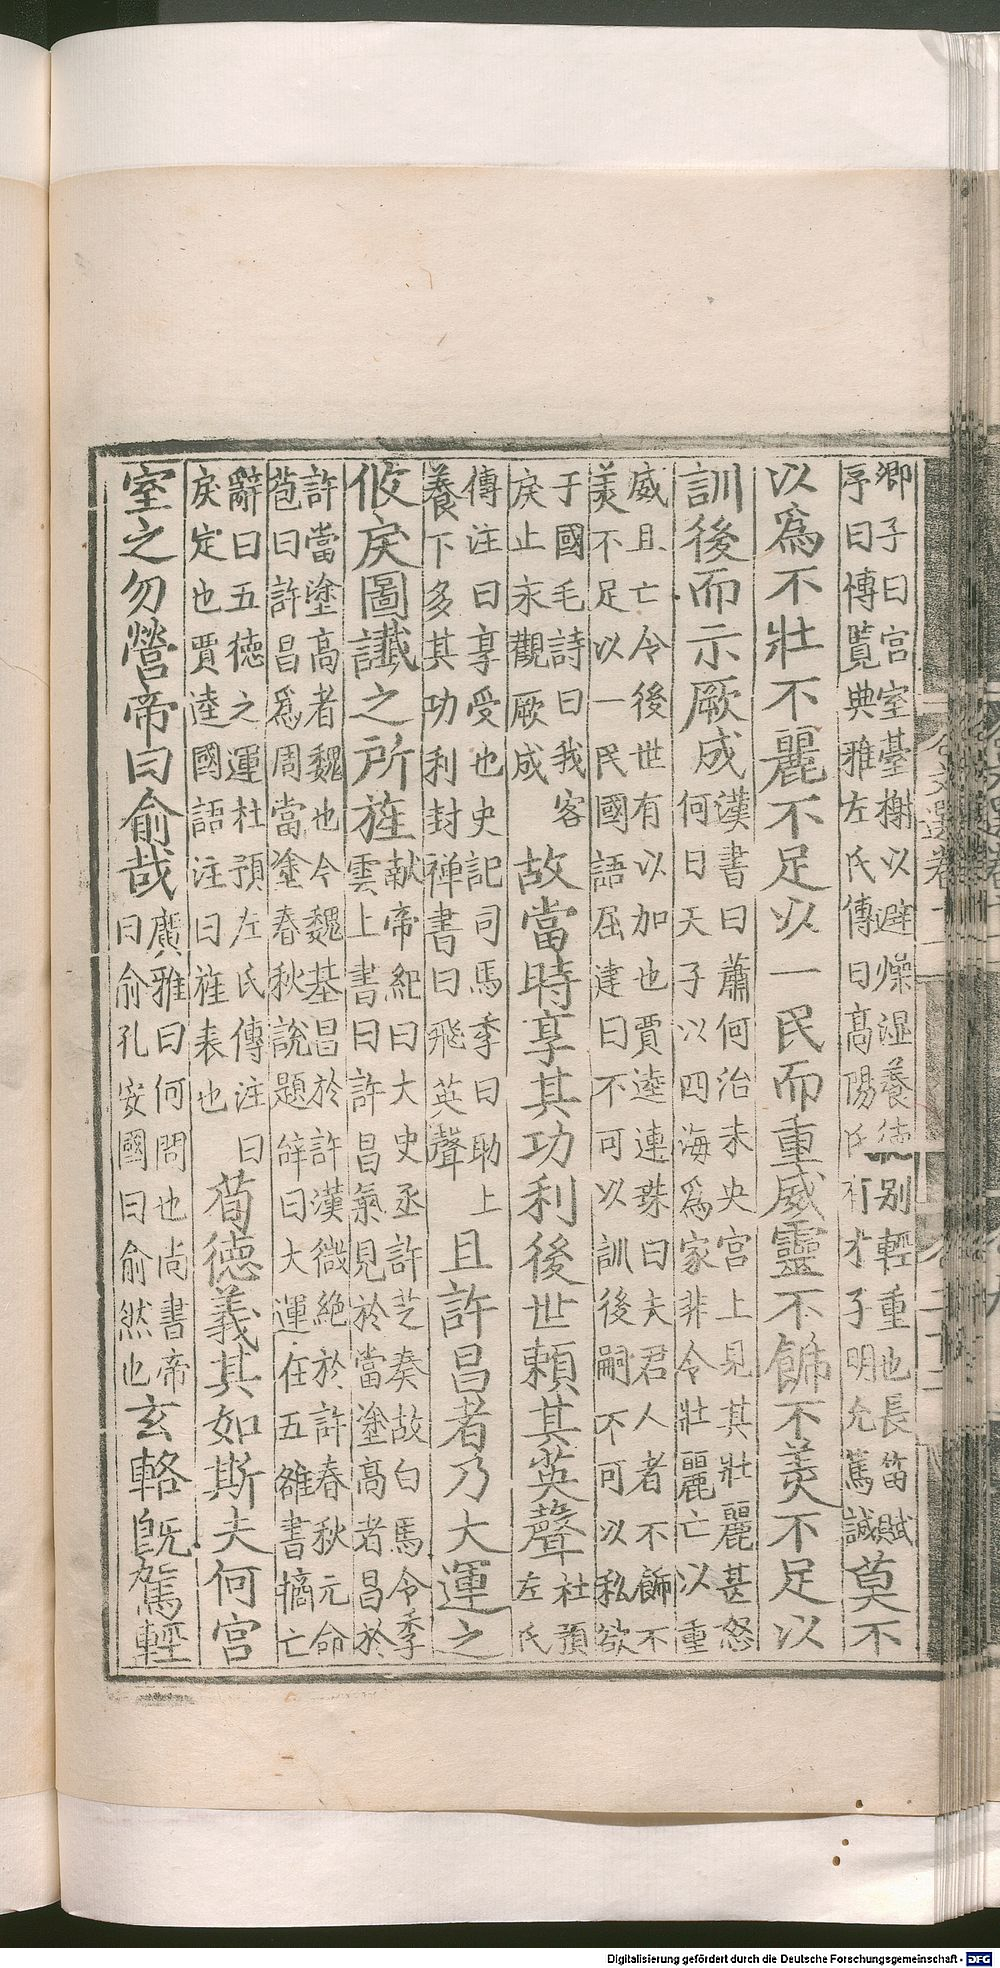 卿子曰宮室臺榭以避燥湿養徳別輕重也長笛賦
序曰博覧典雅左氏傳曰髙陽氏有才子明允篤誠
莫不
以爲不壯不麗不足以一民而重威靈不餙不羙不足以
訓後而示厥成
漢書曰蕭何治未央宫上見其壯麗甚怒
何曰天子以四海爲家非令壯麗亡以重
威且亡令後世有以加也賈逵連珠曰夫君人者不飾不
羙不足以一民國語屈建曰不可以訓後嗣不可以私欲
于國毛詩曰我客
戾止永觀厥成
故當時享其功利後世頼其英聲
杜預
左氏
傳注曰享受也史記司馬季曰助上
養下多其功利封禅書曰飛英聲
且許昌者乃大運之
攸戾圖讖之所旌
献帝紀曰大史丞許芝奏故白馬令季
雲上書曰許昌氣見於當塗髙者昌於
許當塗髙者魏也今魏基昌於許漢微絶於許春秋元命
苞曰許昌爲周當塗春秋説題辝曰大運在五雒書摘亡
辭曰五徳之運杜預左氏傳注曰
戾定也賈逵國語注曰旌表也
苟徳義其如斯夫何宫
室之勿營帝曰俞哉
廣雅曰何問也尚書帝
曰俞孔安國曰俞然也
玄輅旣駕輕
Digitalisierung gefördert durch die Deutsche Forschungsgemeinschaft - DFG